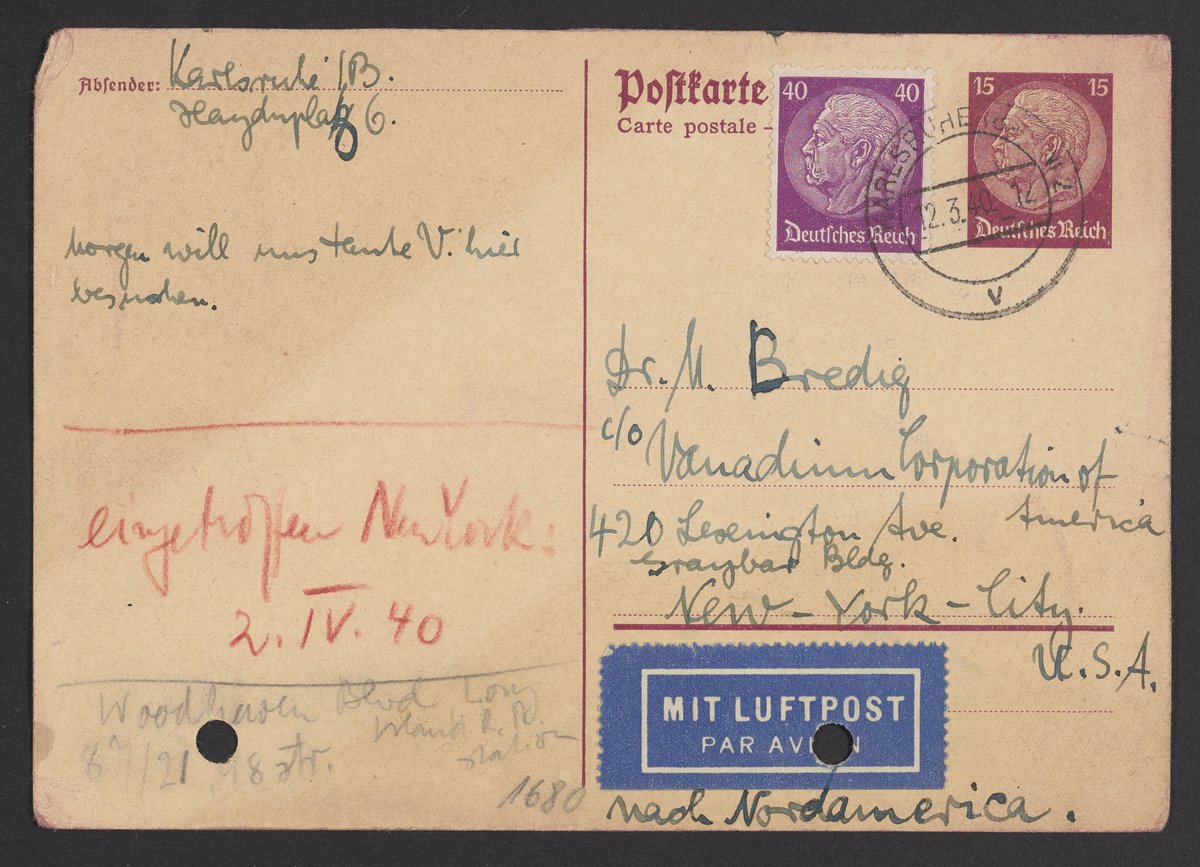 Absender: Karlsruhe i/B.
Haydnplatz 6.
morgen will uns tante V. hier
besuchen.
eingetroffen New York:
2. IV. 40
Woodhaven Blvd Long
Island R. R.
station
98 str.
1680
Postkarte
Carte postale –
40 40
Deutsches Reich
15 15
Deutsches Reich
KARLSRUHE
12.3.40. 12
V
Dr. M. Bredig
c/o Vanadium Corporation of
America
420 Lexington Ave.
Graybar Bldg.
New-York-City.
U.S.A.
MIT LUFTPOST
PAR AVION
nach Nordamerica.